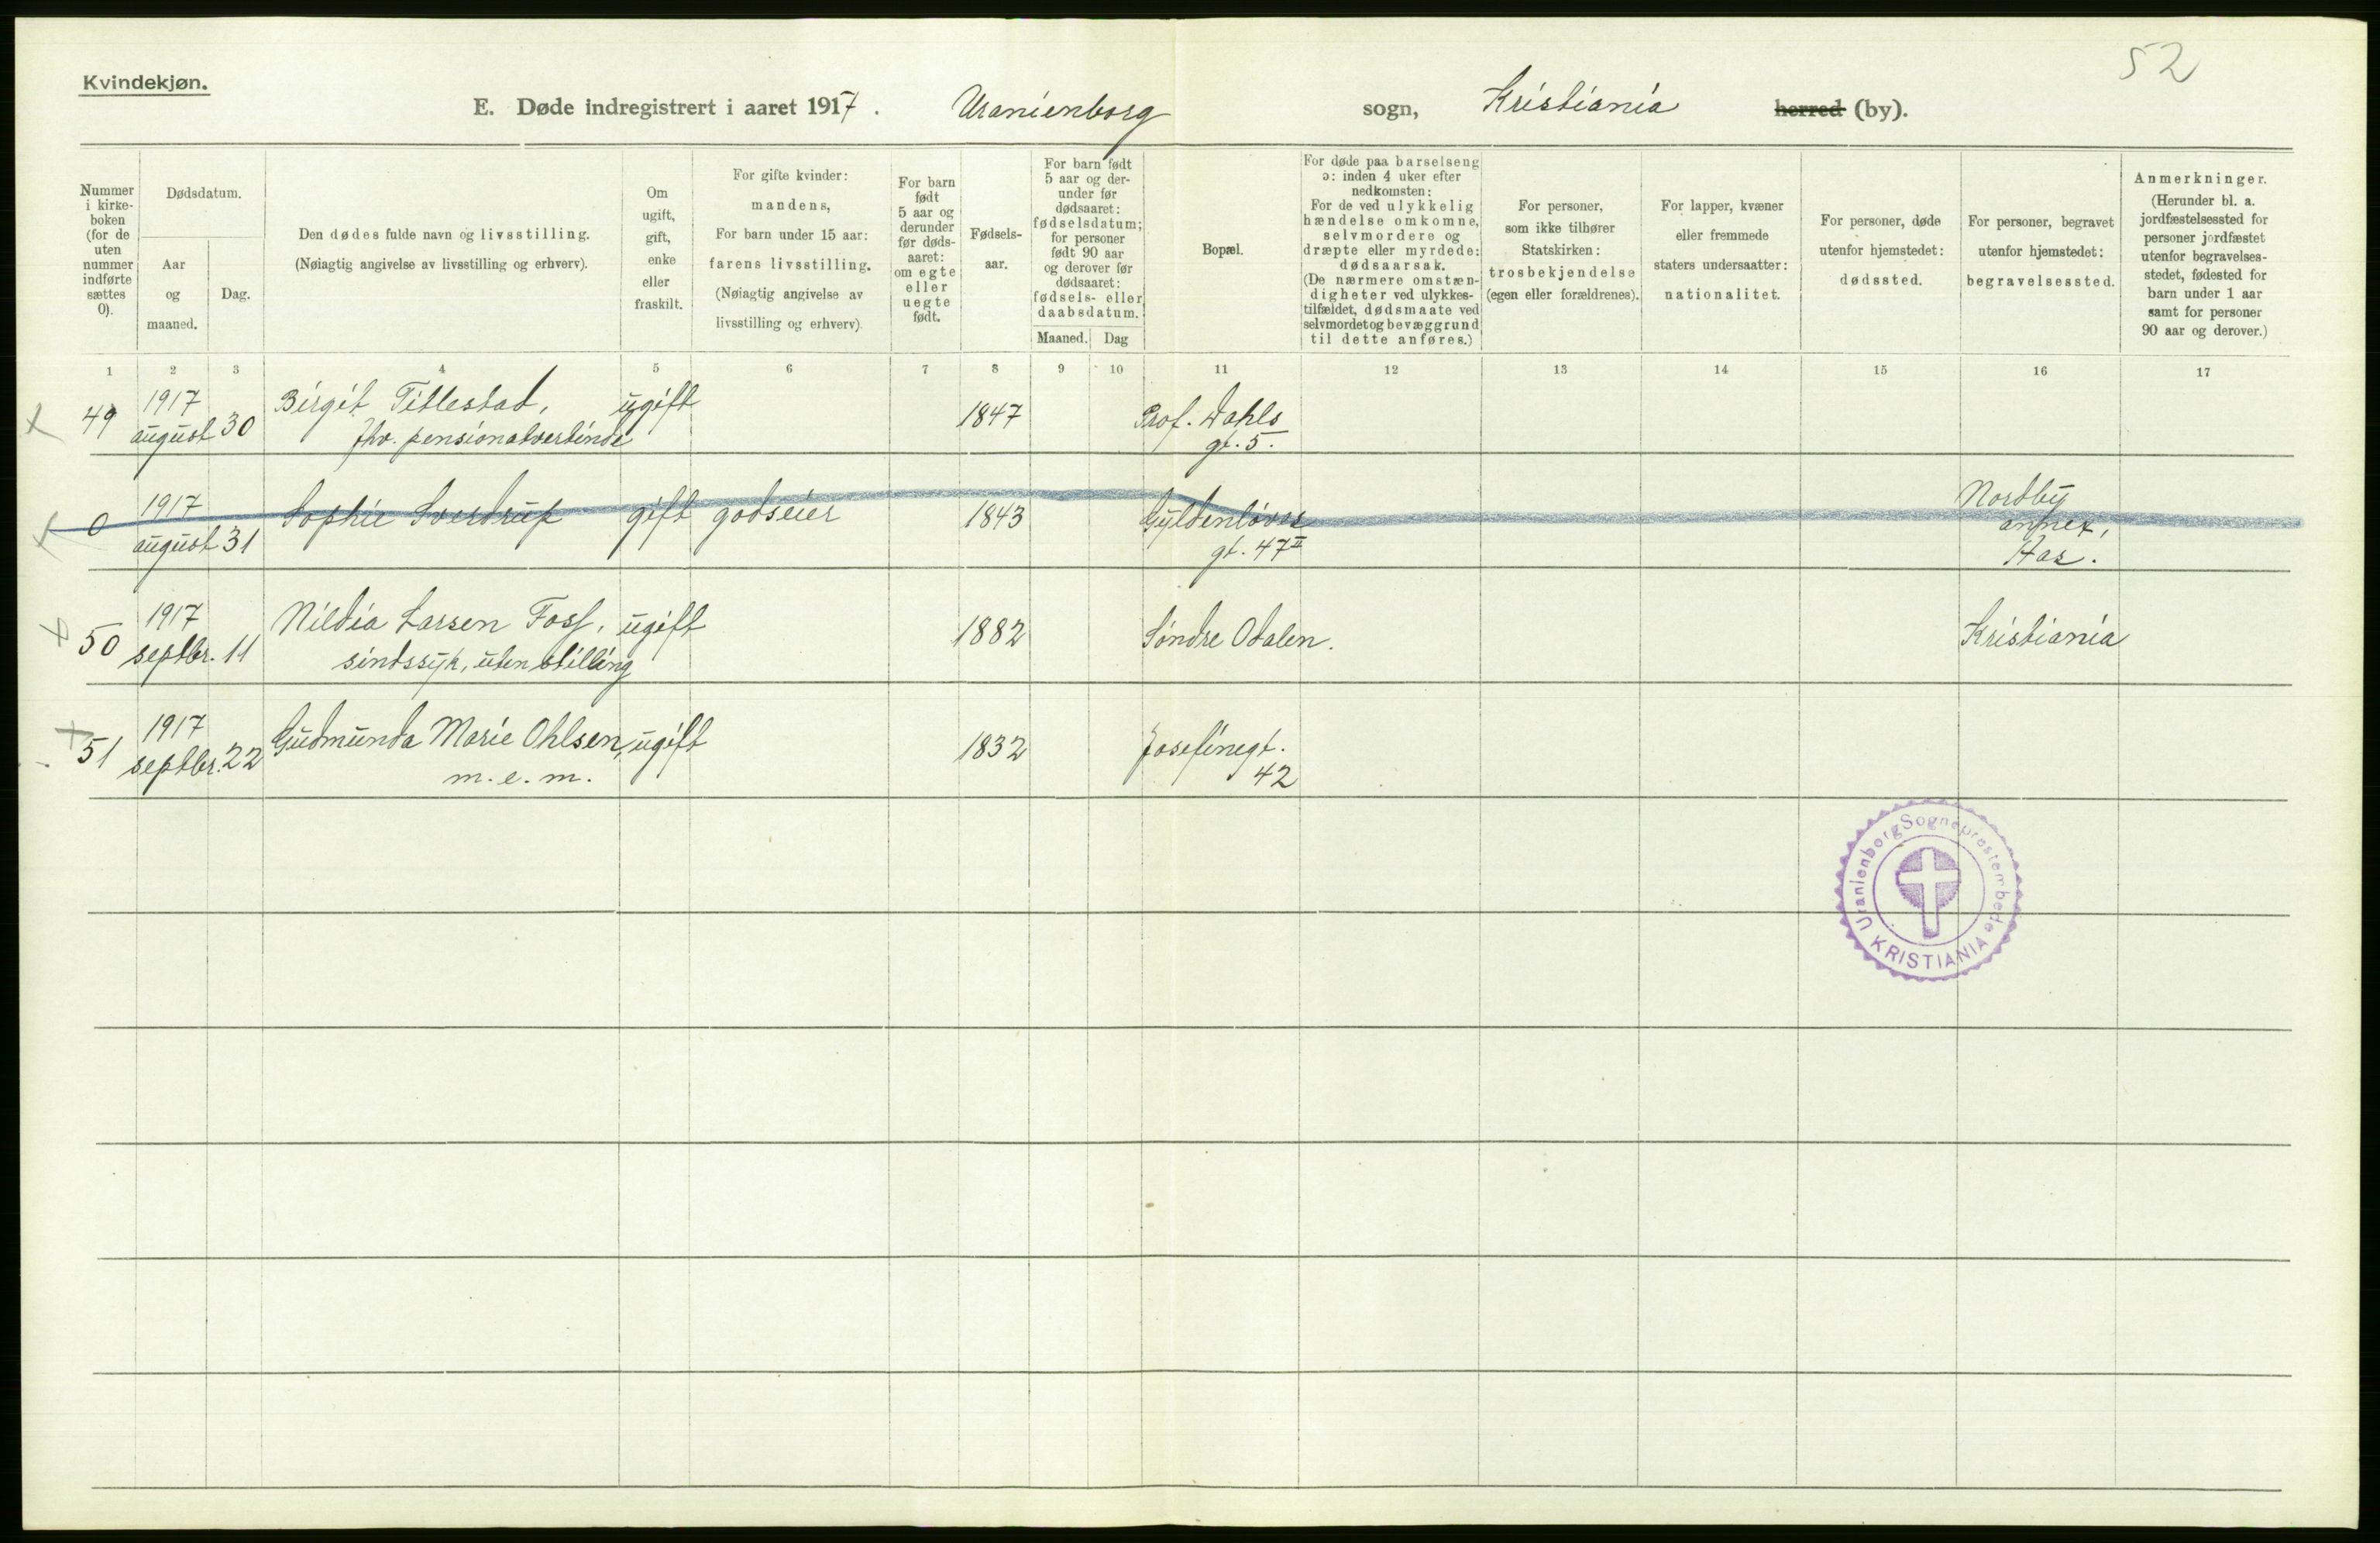 52
Kvindekjøn.
E. Døde indregistrert i aaret 1917. Uranienborg sogn, Kristiania herred (by).
Nummer i kirke- boken (for de uten nummer indførte sættes 0).
Dødsdatum.
Aar og maaned.
Dag.
Den dødes fulde navn og livsstilling.
(Nøiagtig angivelse av livsstilling og erhverv).
Om ugift, gift, enke eller fraskilt.
For gifte kvinder: mandens,
For barn under 15 aar: farens livsstilling.
(Nøiagtig angivelse av livsstilling og erhverv).
For barn født 5 aar og derunder før døds- aaret: om egte eller uegte født.
Fødsels- aar.
For barn født 5 aar og der- under før dødsaaret: fødselsdatum; for personer født 90 aar og derover før dødsaaret: fødsels- eller daabsdatum.
Maaned.
Dag
Bopæl.
For døde paa barselseng ɔ: inden 4 uker efter nedkomsten:
For de ved ulykkelig hændelse omkomne, selvmordere og dræpte eller myrdede: dødsaarsak.
(De nærmere omstæn- digheter ved ulykkes- tilfældet, dødsmaate ved selvmordet og bevæggrund til dette anføres.)
For personer, som ikke tilhører Statskirken: trosbekjendelse (egen eller forældrenes).
For lapper, kvæner eller fremmede staters undersaatter: nationalitet.
For personer, døde utenfor hjemstedet: dødssted.
For personer, begravet utenfor hjemstedet: begravelsessted.
Anmerkninger.
(Herunder bl. a. jordfæstelsessted for personer jordfæstet utenfor begravelses- stedet, fødested for barn under 1 aar samt for personer 90 aar og derover.)
1 2 3 4 5 6 7 8 9 10 11 12 13 14 15 16 17
49 1917 august 30 Birgit Titlestad, ugift 1847 Prof. Dahls
fhv. pensionatvertinde gt. 5.
0 1917 august 31 Sophie Sverdrup gift godseier 1843 Gyldenløves
gt. 47 II
Nordby
annex,
Aas.
50 1917 septbr. 11 Nildia Larsen Foss, ugift 1882 Søndre Odalen. Kristiania
sindssyk, uten stilling
51 1917 septbr. 22 Gudmunda Marie Ohlsen, ugift 1832 Josefinegt.
m. e. m. 42
Uranienborg Sogneprestembede
KRISTIANIA